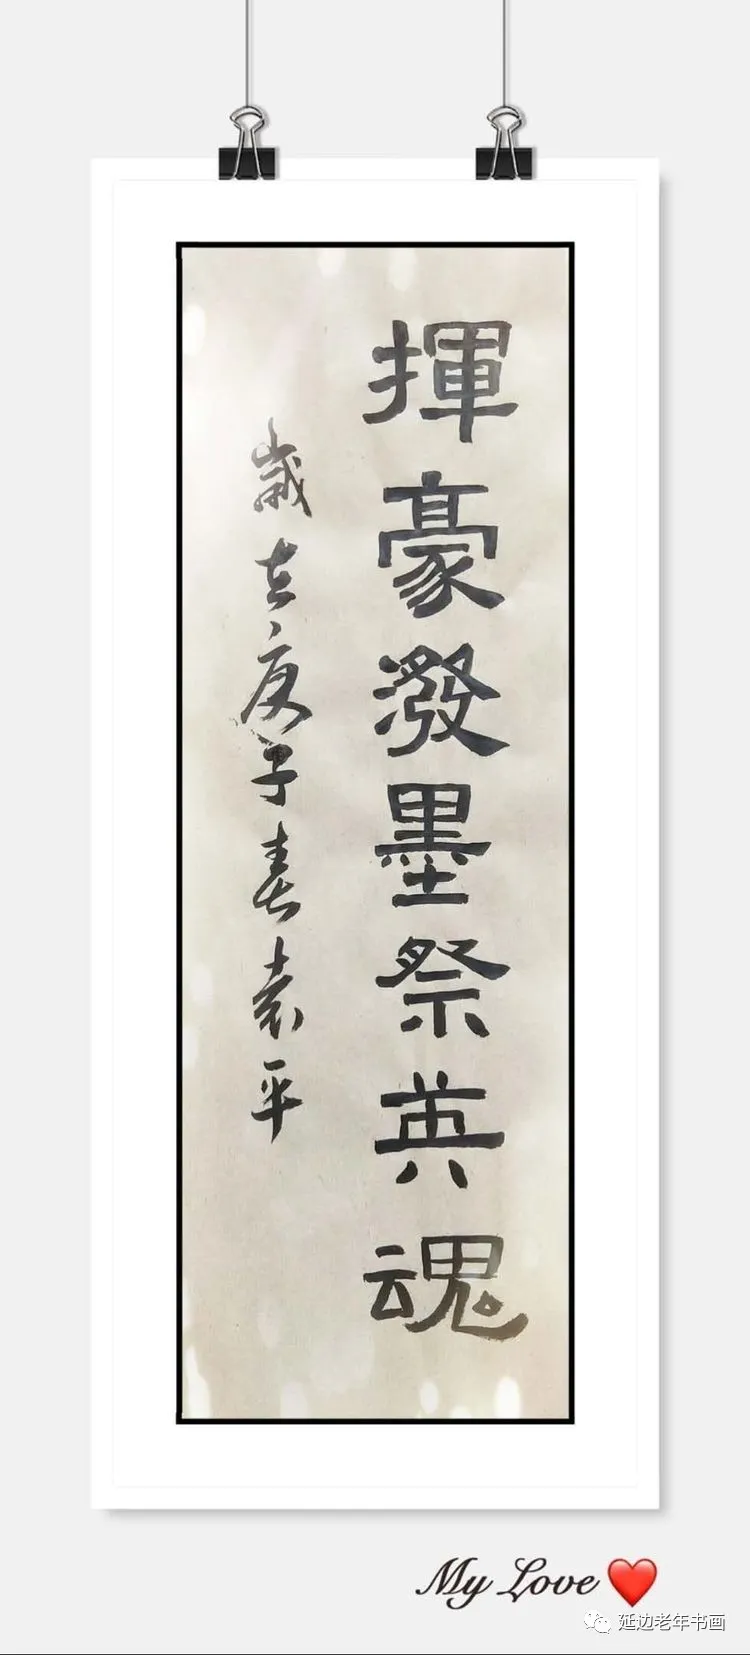 揮豪潑墨祭英魂
歲在庚子春袁平
My Love
延边老年书画